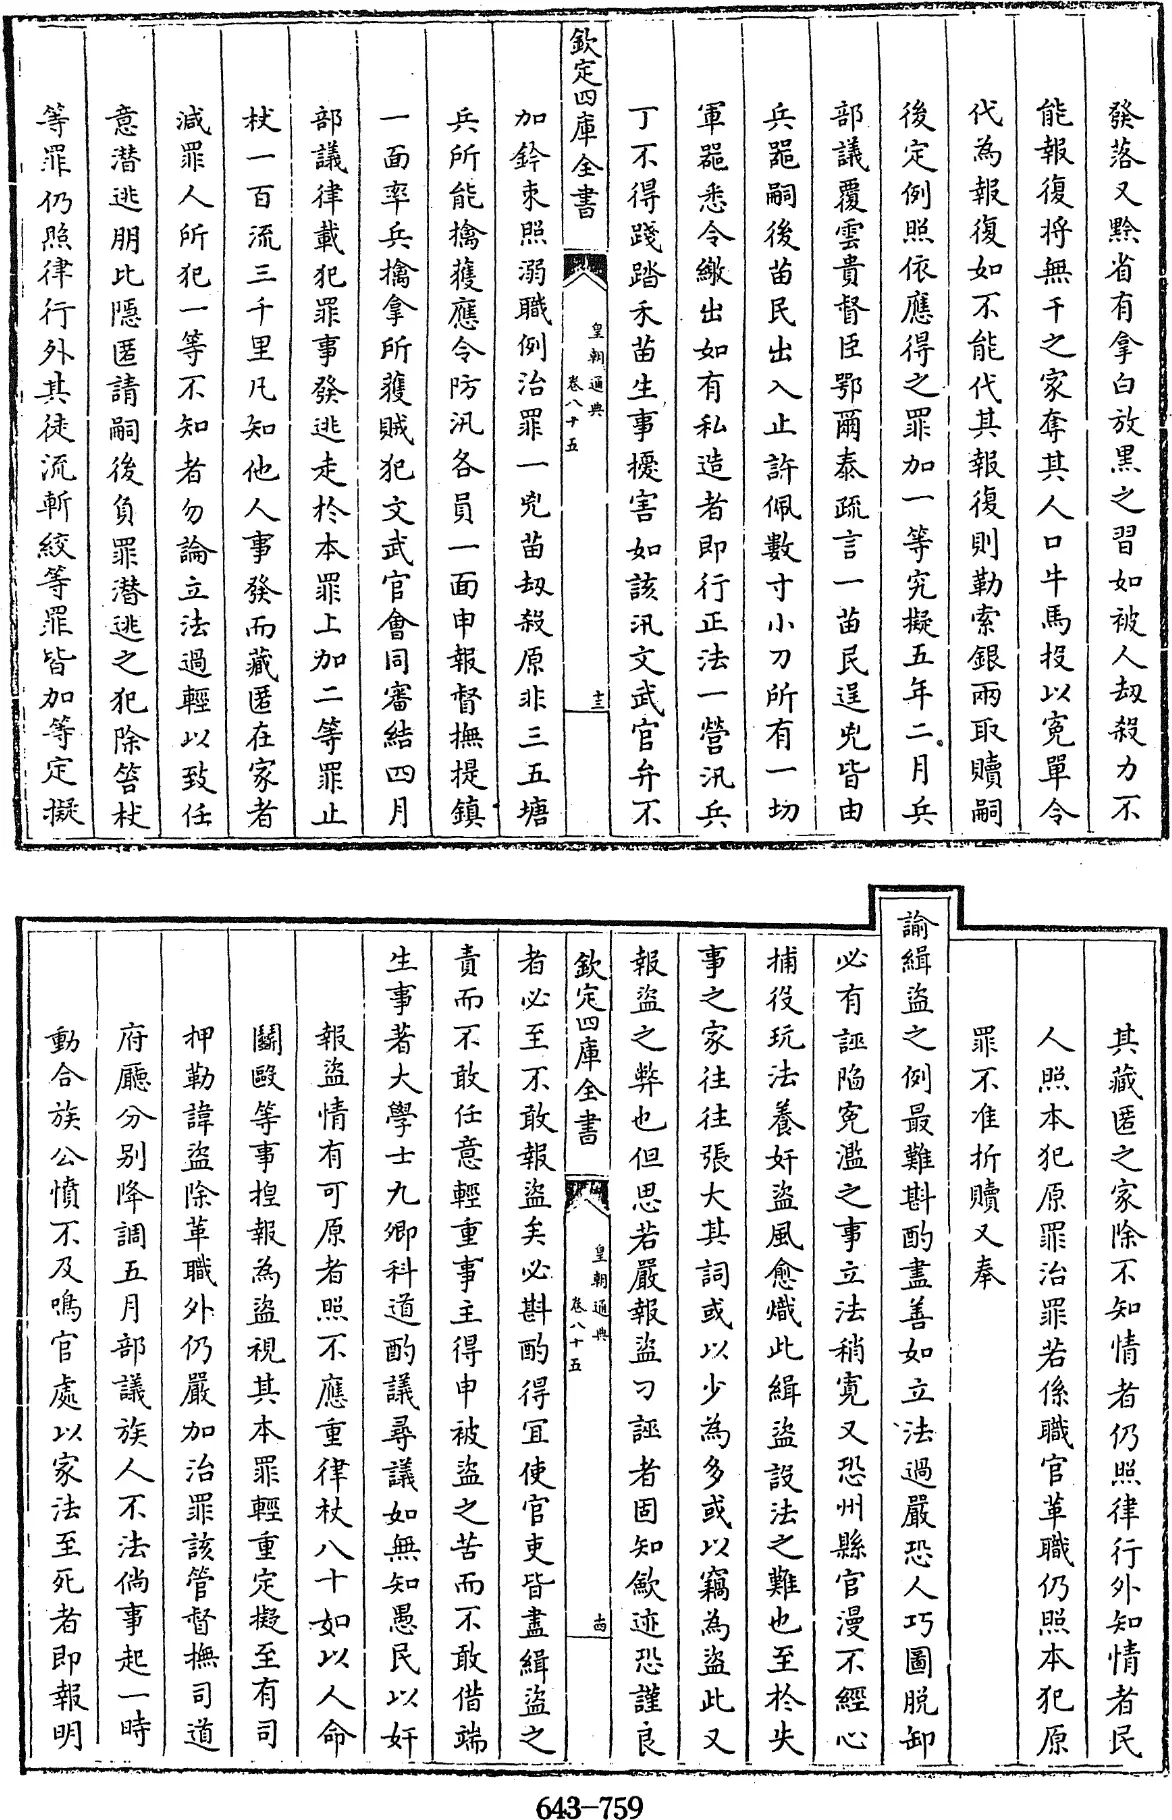 發落又黔省有拿白放黑之習如被人刼殺力不
能報復將無干之家奪其人口牛馬投以寃單令
代為報復如不能代其報復則勒索銀兩取贖嗣
後定例照依應得之罪加一等究擬五年二月兵
部議覆雲貴督臣鄂爾泰疏言一苗民逞兇皆由
兵噐嗣後苗民出入止許佩數寸小刀所有一切
軍噐悉令繳出如有私造者即行正法一營汛兵
丁不得踐踏禾苗生事擾害如該汛文武官弁不
欽定四庫全書
皇朝通典
卷八十五
十三
加鈐束照溺職例治罪一兇苗刼殺原非三五塘
兵所能擒獲應令防汛各員一面申報督撫提鎮
一面率兵擒拿所獲賊犯文武官會同審結四月
部議律載犯罪事發逃走於本罪上加二等罪止
杖一百流三千里凡知他人事發而藏匿在家者
減罪人所犯一等不知者勿論立法過輕以致任
意潛逃朋比隱匿請嗣後負罪潛逃之犯除笞杖
等罪仍照律行外其徒流斬絞等罪皆加等定擬
其藏匿之家除不知情者仍照律行外知情者民
人照本犯原罪治罪若係職官革職仍照本犯原
罪不准折贖又奉
諭緝盜之例最難斟酌盡善如立法過嚴恐人巧圖脫卸
必有誣陷寃濫之事立法稍寬又恐州縣官漫不經心
捕役玩法養奸盜風愈熾此緝盜設法之難也至於失
事之家往往張大其詞或以少為多或以竊為盜此又
報盜之弊也但思若嚴報盜刁誣者固知歛迹恐謹良
欽定四庫全書
皇朝通典
卷八十五
十四
者必至不敢報盜矣必斟酌得冝使官吏皆盡緝盜之
責而不敢任意輕重事主得申被盜之苦而不敢借端
生事著大學士九卿科道酌議尋議如無知愚民以奸
報盜情有可原者照不應重律杖八十如以人命
鬭毆等事揑報為盜視其本罪輕重定擬至有司
押勒諱盜除革職外仍嚴加治罪該管督撫司道
府廳分别降調五月部議族人不法倘事起一時
動合族公憤不及鳴官處以家法至死者即報明
643-759